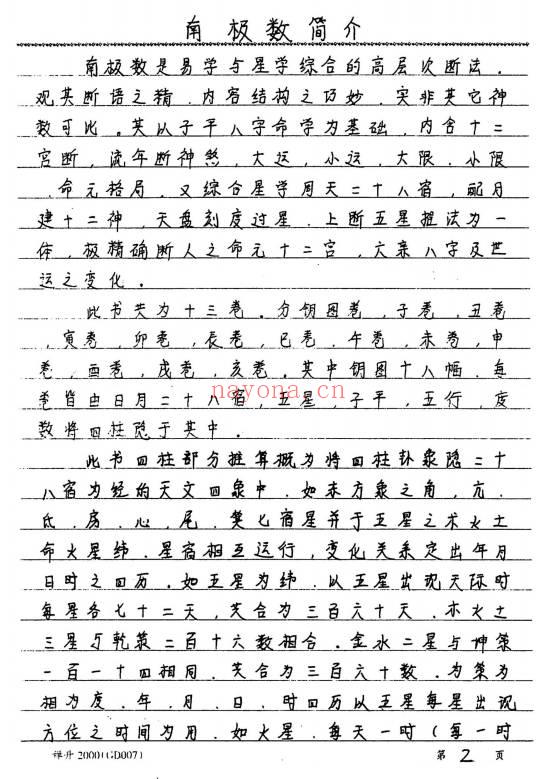 南极数简介
南极数是易学与星学综合的高层次断法.
观其断语之精.内容结构之巧妙.实非其它神
数可比。其以子平八字命学为基础,内含十二
宫断,流年断神煞,大运,小运.大限.小限
.命元格局.又综合星学周天二十八宿,配月
建十二神,天盘刻度过星.上断五星推法为一
体,极精确断人之命元十二宫,六亲八字及世
运之变化.
此书共为十三卷.分钥图卷,子卷,丑卷
,寅卷,卯卷,辰卷,巳卷.午卷,未卷,申
卷,酉卷,戌卷,亥卷.其中钥图十八幅.每
卷皆由日月二十八宿,五星,子平,五行,度
数将四柱隐于其中.
nayona.cn
此书四柱部分推算概为将四柱卦象隐二十
八宿为经的天文四象中.如东方象之角,亢.
氐.房.心.尾.箕七宿星并于五星之木火土
命火星纬.星宿相互运行,变化关系定出年月
日时之四历.如五星为纬.以五星出现天际时
每星各七十二天,共合为三百六十天.木火土
三星与乾策二百十六数相合.金水二星与坤策
一百一十四相同.共合为三百六十数.为策为
相为度.年.月.日.时四历以五星每星出现
方位之时间为用.如火星.每天一时(每一时
禅升2000(GD007)
第2页